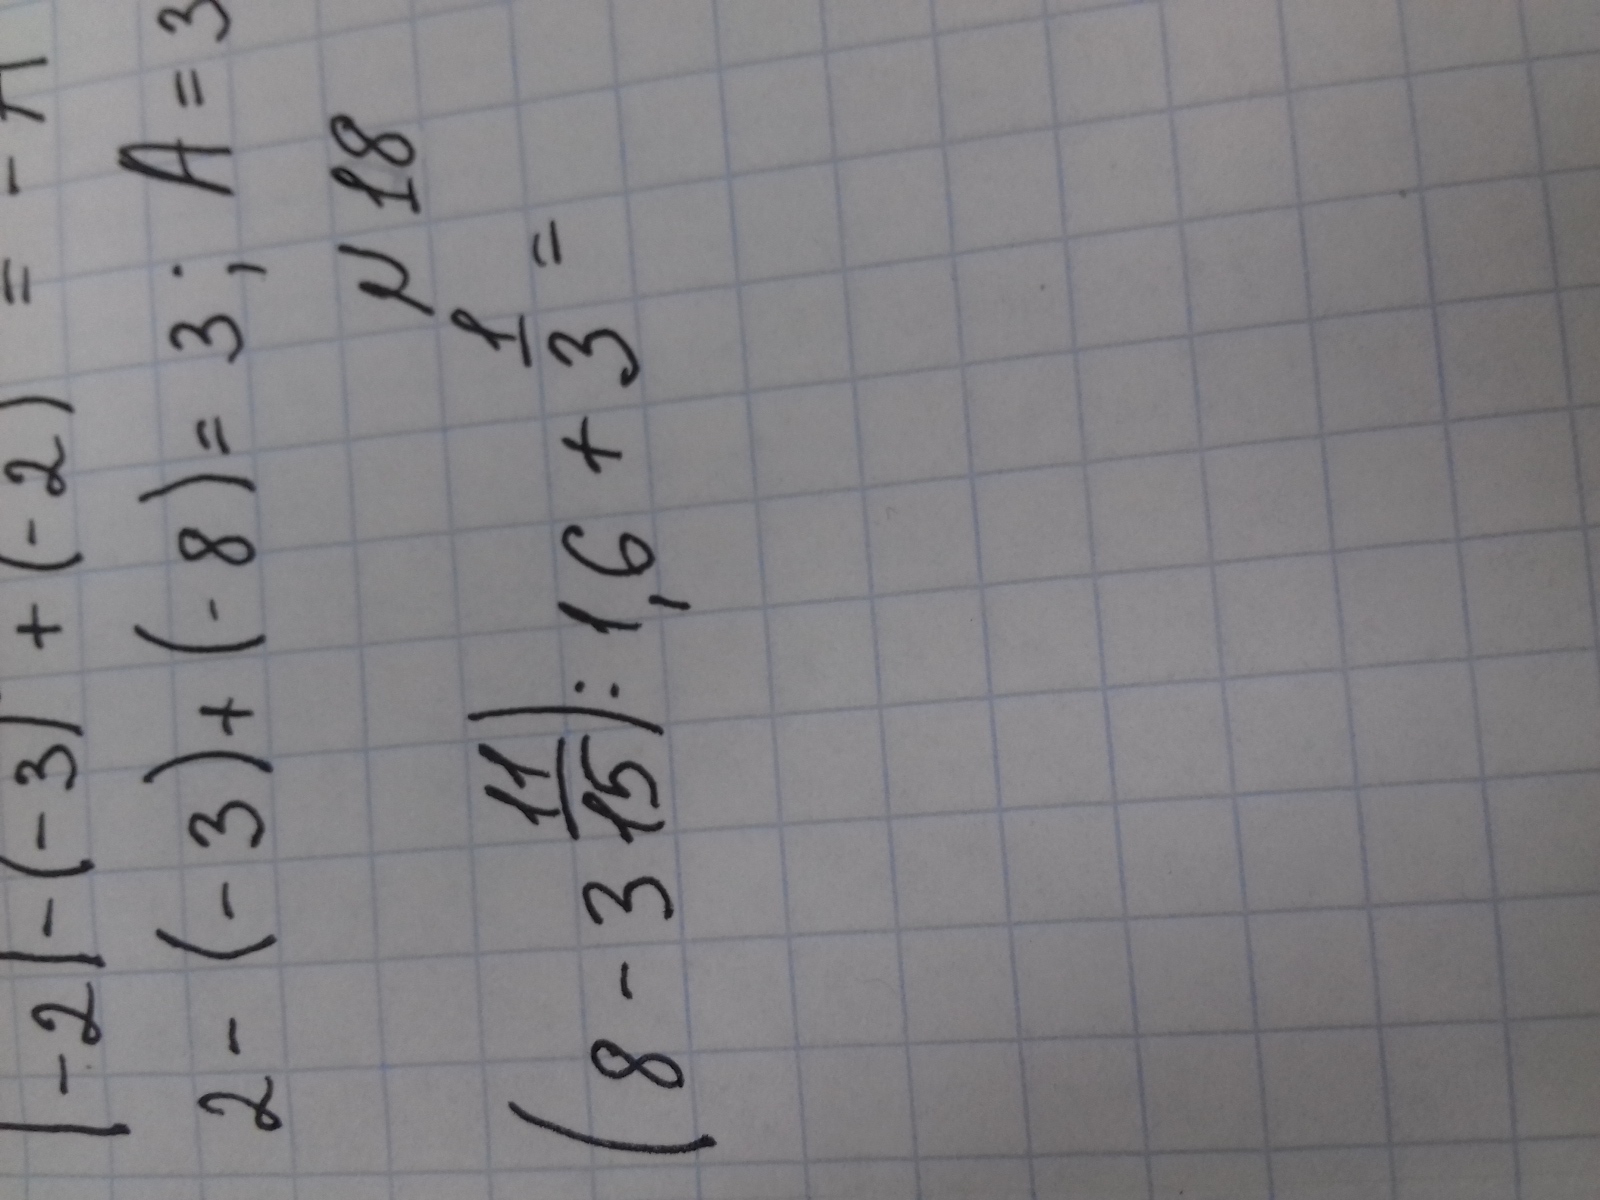 |-2|-(-3)+(-2) =
2-(-3)+(-8)=3; A=3
N 18
(8 - 3 11/15) : 1,6 + 1/3 =